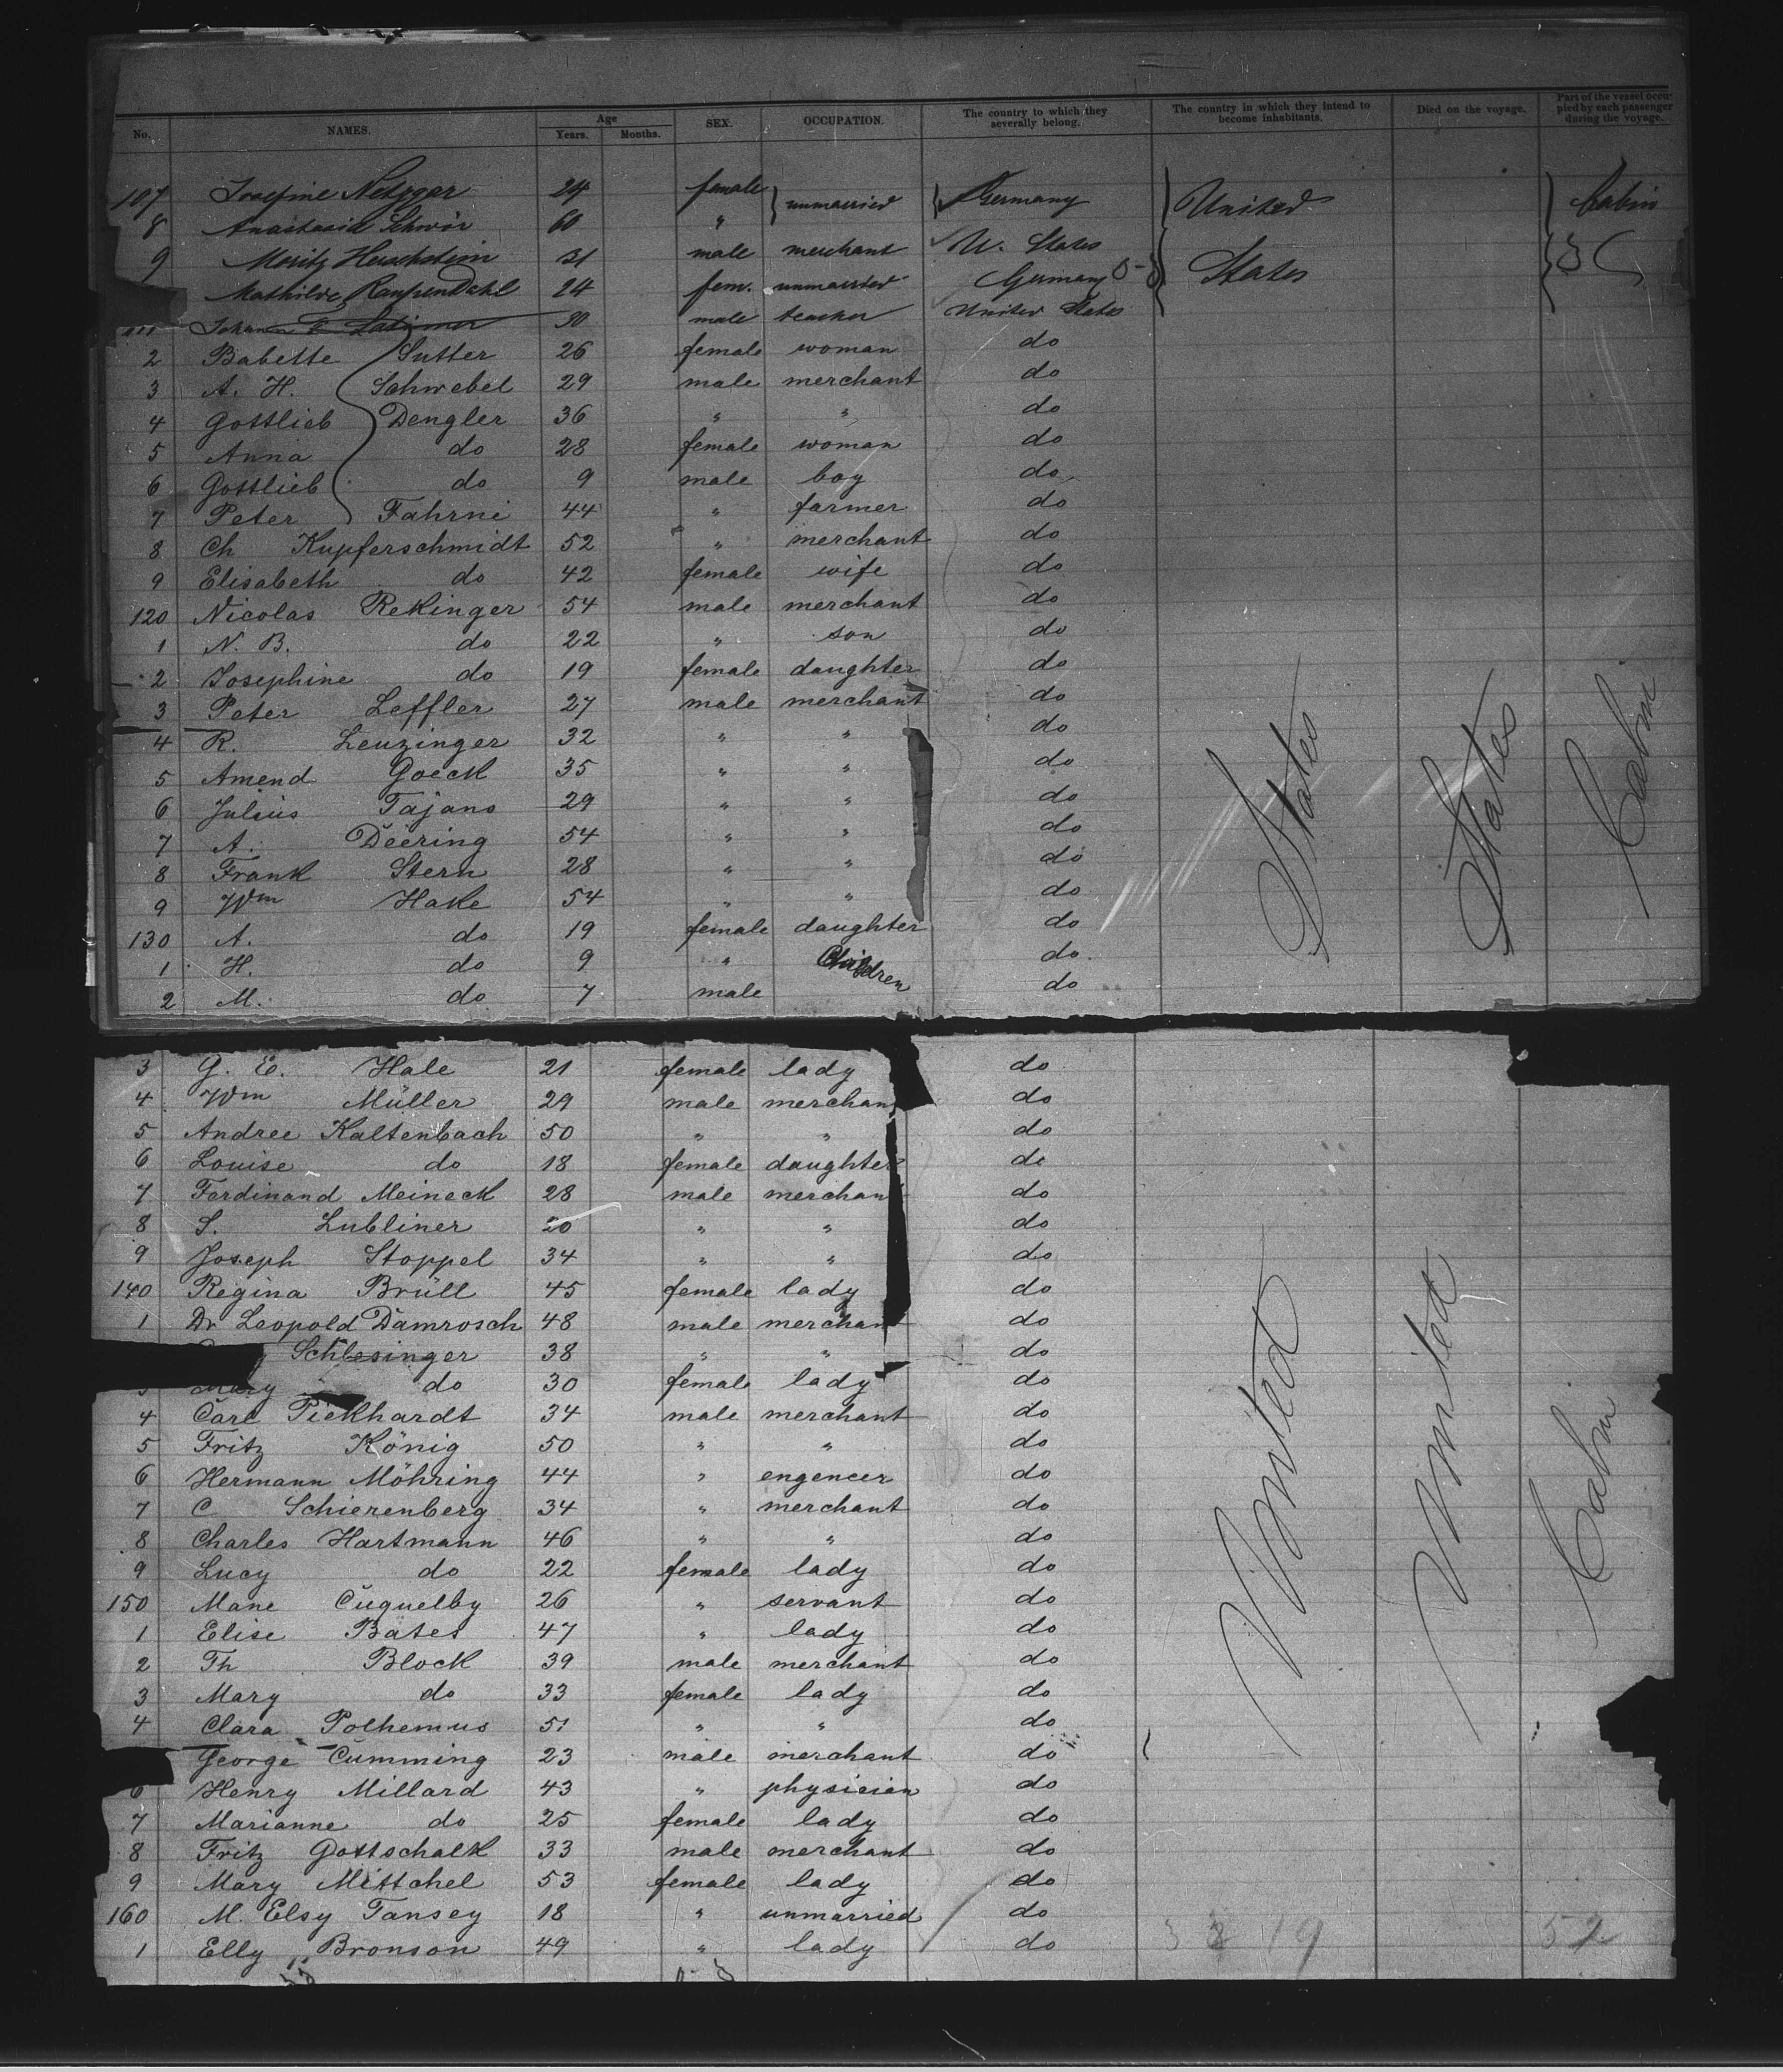 No. NAMES. Age Years. Months. SEX. OCCUPATION. The country to which they severally belong. The country in which they intend to become inhabitants. Died on the voyage. Part of the vessel occupied by each passenger during the voyage.
107 Josefine Netzger 24 female unmarried Germany United Cabin
8 Anastasia Schwör 60 "
9 Moritz 31 male merchant U. States
Mathilde Raupendahl 24 fem. unmarried Germany States
111 Johann 30 male teacher United States
2 Babette Sutter 26 female woman do
3 A. H. Schwebel 29 male merchant do
4 Gottlieb Dengler 36 " " do
5 Anna do 28 female woman do
6 Gottlieb do 9 male boy do
7 Peter Fahrni 44 " farmer do
8 Ch Kupferschmidt 52 " merchant do
9 Elisabeth do 42 female wife do
120 Nicolas Rekinger 54 male merchant do
1 N. B. do 22 " son do
2 Josephine do 19 female daughter do
3 Peter Leffler 27 male merchant do
4 R. Leuzinger 32 " " do
5 Amend Goeck 35 " " do
6 Julius Tajano 29 " " do
7 A. Deering 54 " " do
8 Frank Stern 28 " " do
9 Wm Hake 54 " " do
130 A. do 19 female daughter do
1 H. do 9 " Children do
2 M. do 7 male do
States States Cabin
3 G. E. Hale 21 female lady do
4 Wm Müller 29 male merchant do
5 Andree Kaltenbach 50 " " do
6 Louise do 18 female daughter do
7 Ferdinand Meineck 28 male merchant do
8 S. Lubliner 20 " " do
9 Joseph Stoppel 34 " " do
140 Regina Brüll 45 female lady do
1 Dr Leopold Damrosch 48 male merchant do
Schlesinger 38 " " do
3 Mary do 30 female lady do
4 Carl Piekhardt 34 male merchant do
5 Fritz König 50 " " do
6 Hermann Möhring 44 " engeneer do
7 C Schierenberg 34 " merchant do
8 Charles Hartmann 46 " " do
9 Lucy do 22 female lady do
150 Mane Cuquelby 26 " servant do
1 Elise Bates 47 " lady do
2 Th Block 39 male merchant do
3 Mary do 33 female lady do
4 Clara Polhemus 51 " " do
George Cumming 23 male merchant do
6 Henry Millard 43 " physician do
7 Marianne do 25 female lady do
8 Fritz Gottschalk 33 male merchant do
9 Mary Mittchel 53 female lady do
160 M. Elsy Tansey 18 " unmarried do
1 Elly Bronson 49 " lady do
United United Cabin
19 52